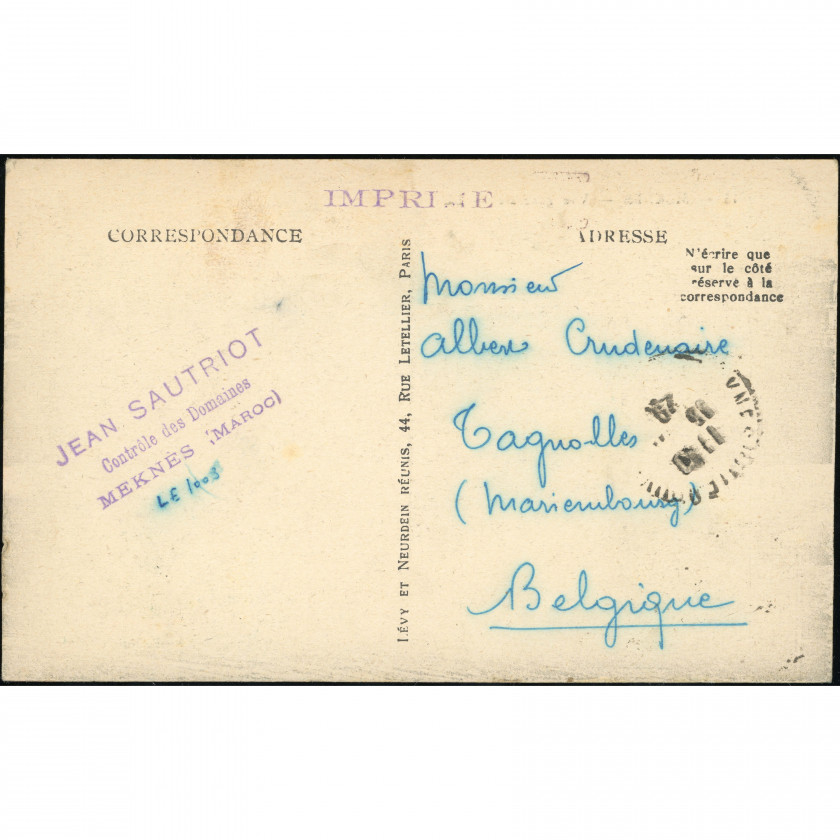 IMPRIMÉ
CORRESPONDANCE
JEAN SAUTRIOT
Contrôle des Domaines
MEKNÈS (MAROC)
LE 1003
LÉVY ET NEURDEIN RÉUNIS, 44, RUE LETELLIER, PARIS
ADRESSE
N'écrire que
sur le côté
réservé à la
correspondance
Monsieur
Albert Crudenaire
Tagnolles
(Mariembourg)
Belgique